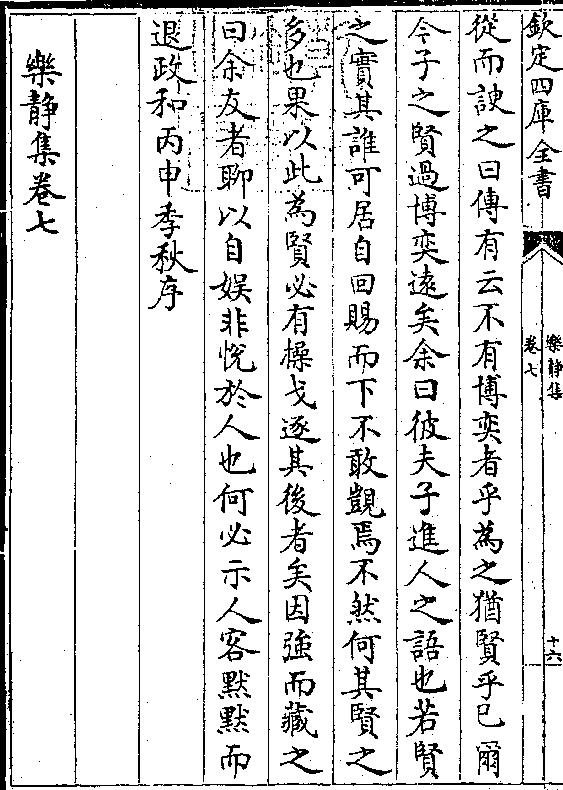 欽定四庫全書
樂静集
卷七
十六
從而諛之曰傳有云不有博奕者乎為之猶賢乎已爾
今子之賢過博奕逺矣余曰彼夫子進人之語也若賢
之實其誰可居自回賜而下不敢覬焉不然何其賢之
多也果以此為賢必有操戈逐其後者矣因强而藏之
曰余友者聊以自娱非悦於人也何必示人客黙黙而
退政和丙申季秋序
樂静集卷七